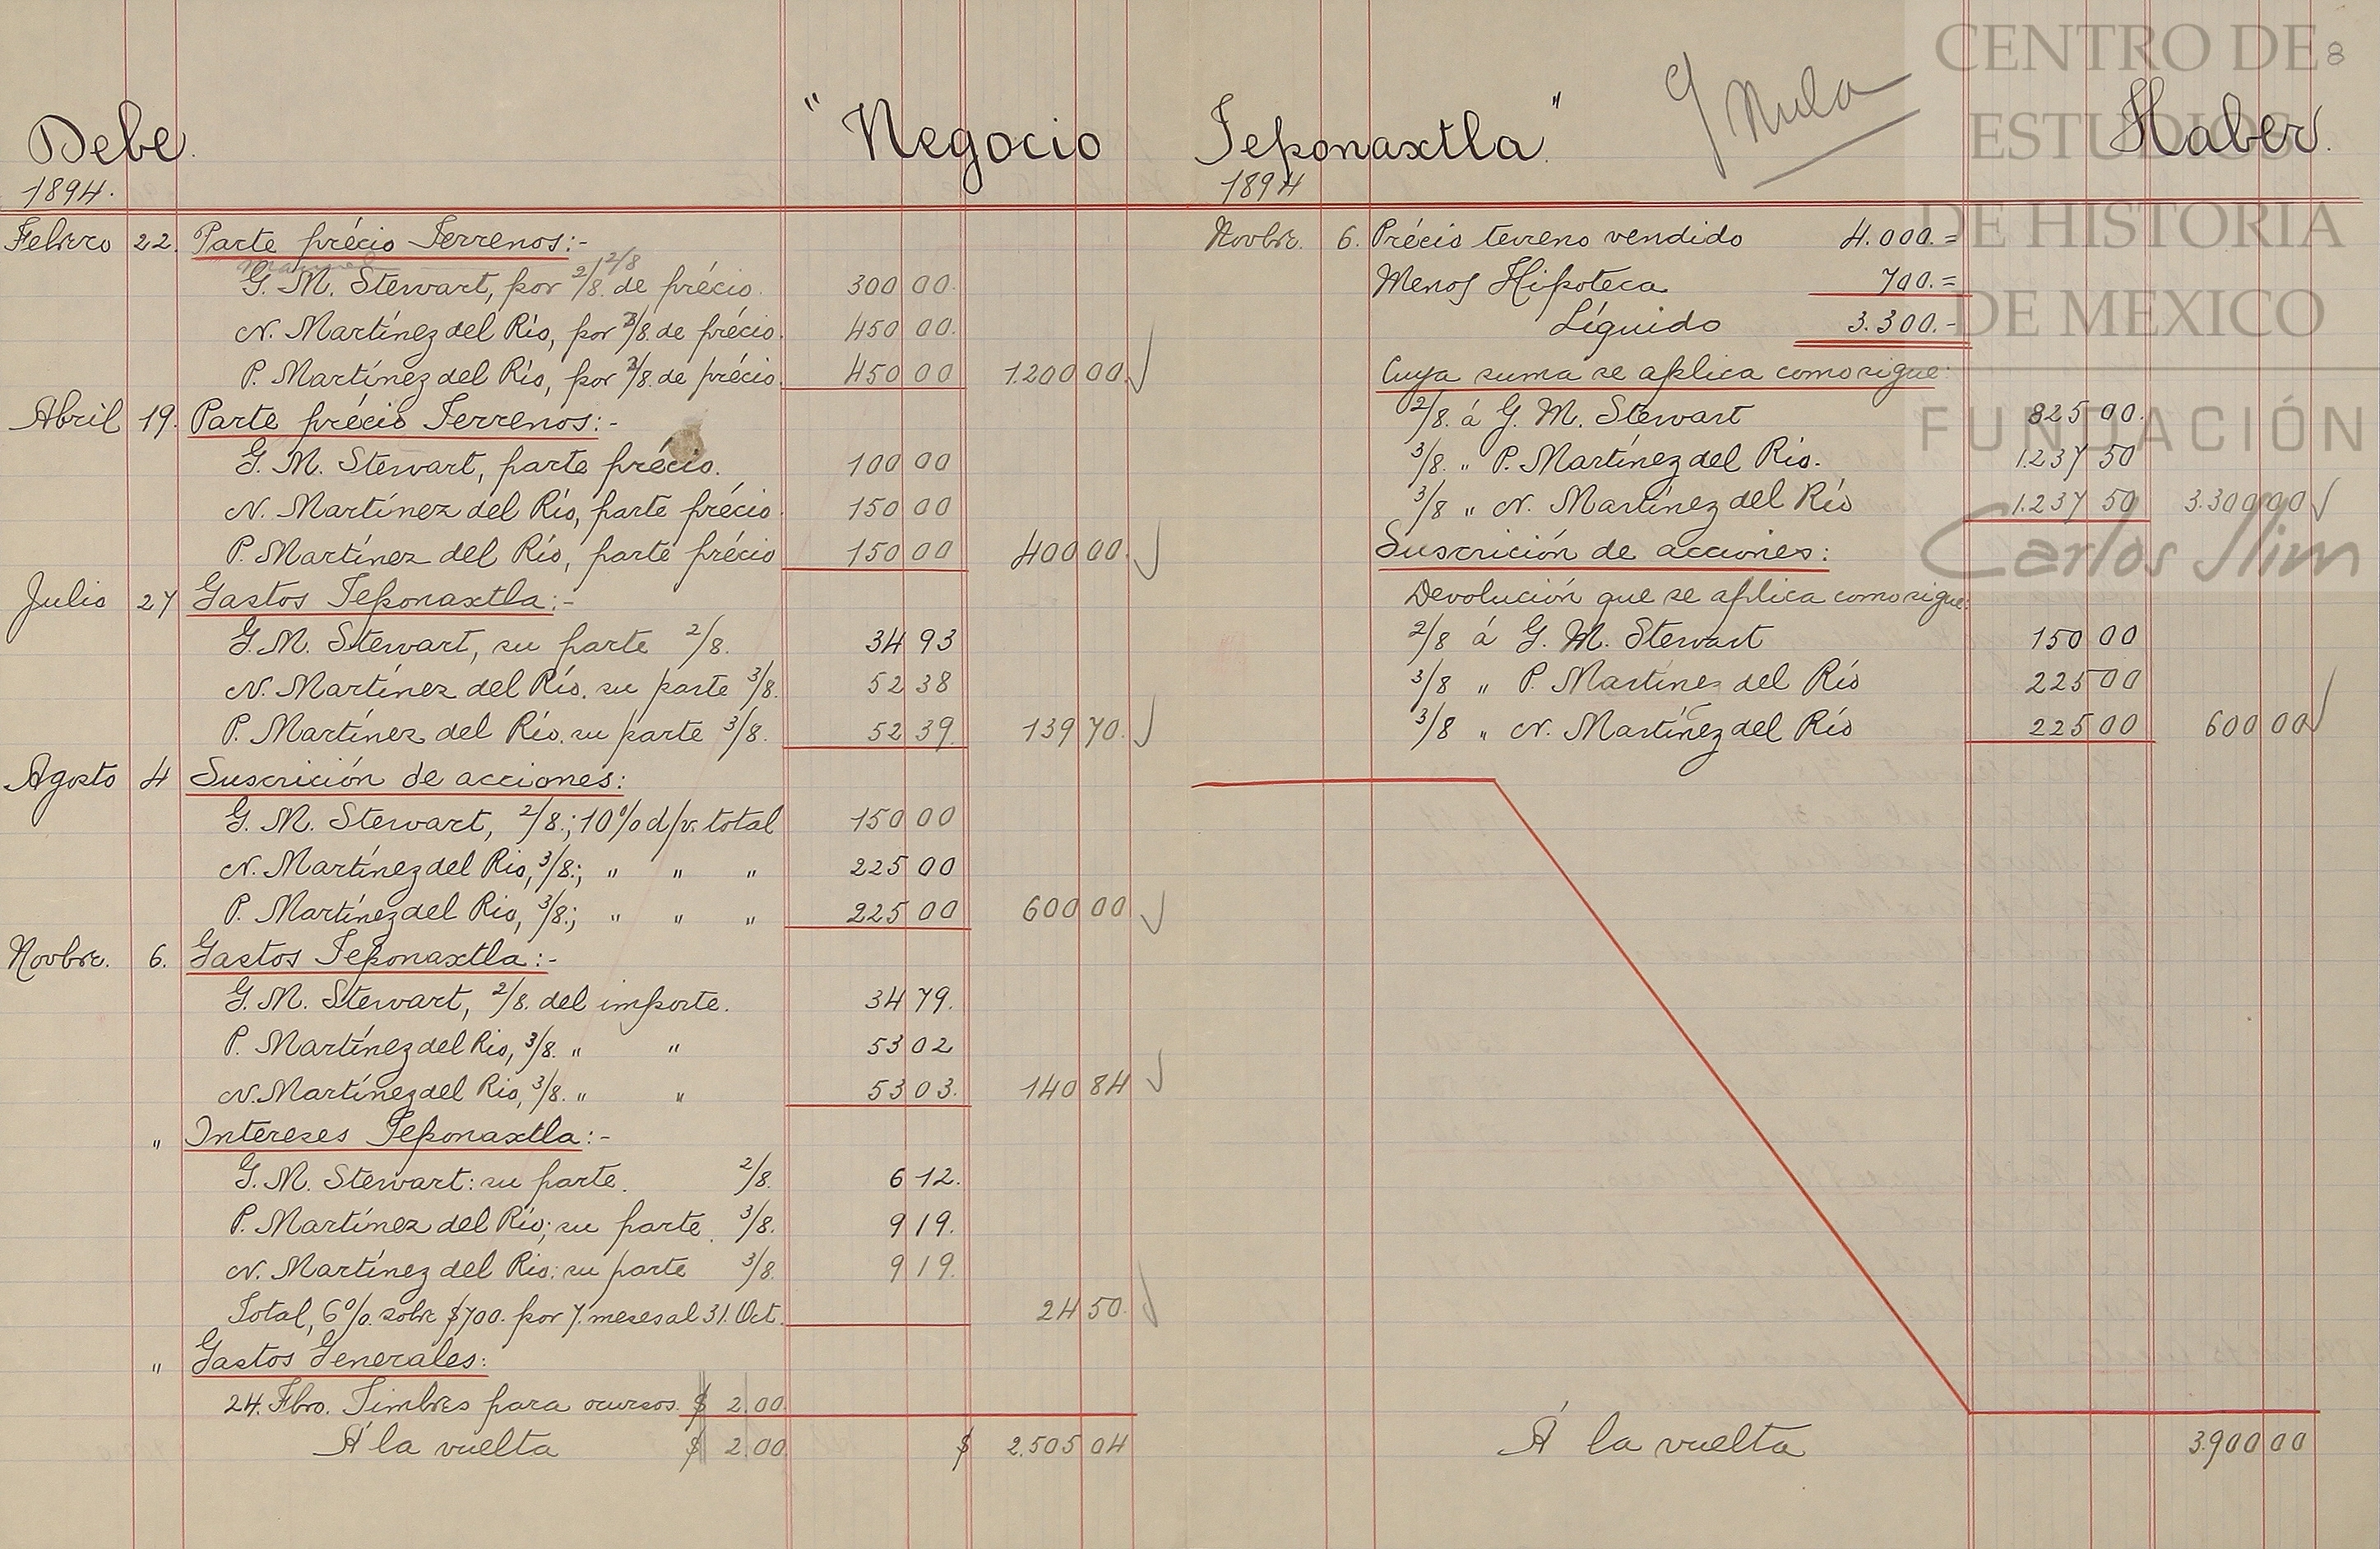 Debe.
1894.
"Negocio
Febrero 22. Parte précio Terrenos:-
G. M. Stewart, por 2/8. de précio. 300 00.
2/8
N. Martínez del Río, por 3/8. de précio. 450 00.
P. Martínez del Río, por 3/8. de précio. 450 00 1.200 00.
Abril 19. Parte précio Terrenos:-
G. M. Stewart, parte précio. 100 00
N. Martínez del Río, parte précio. 150 00
P. Martínez del Río, parte précio 150 00 400 00.
Julio 27 Gastos Teponaxtla:-
G. M. Stewart, su parte 2/8. 34 93
N. Martínez del Río. su parte 3/8. 52 38
P. Martínez del Río. su parte 3/8. 52 39. 139 70.
Agosto 4 Suscrición de acciones:
G. M. Stewart, 2/8.; 10% d/v. total 150 00
N. Martínez del Rio, 3/8.; " " " 225 00
P. Martínez del Rio, 3/8.; " " " 225 00 600 00
Novbre. 6. Gastos Teponaxtla:-
G. M. Stewart, 2/8. del importe. 34 79.
P. Martínez del Rio, 3/8. " " 53 02
N. Martínez del Rio, 3/8. " " 53 03. 140 84
" Intereses Teponaxtla:-
G. M. Stewart: su parte. 2/8. 6 12.
P. Martínez del Río; su parte. 3/8. 9 19.
N. Martínez del Rio: su parte 3/8. 9 19.
Total, 6%. sobre $700. por 7. meses al 31. Oct. 24 50.
" Gastos Generales:
24. Fbro. Timbres para ocursos. $ 2.00.
Á la vuelta $ 2.00 $ 2.505 04
Teponaxtla."
Nula
Haber.
8
1894
Novbre. 6. Précio terreno vendido 4.000.=
Menos Hipoteca 700.=
Líquido 3.300.-
Cuya suma se aplica como sigue:
2/8. á G. M. Stewart 825 00.
3/8. " P. Martínez del Río. 1.237 50
3/8 " N. Martínez del Río 1.237 50 3.300 00
Suscrición de acciones:
Devolución que se aplica como sigue:
2/8 á G. M. Stewart 150 00
3/8 " P. Martínez del Río 225 00
3/8 " N. Martínez del Río 225 00 600 00
Á la vuelta 3.900 00
CENTRO DE
ESTUDIOS
DE HISTORIA
DE MEXICO
FUNDACIÓN
Carlos Slim